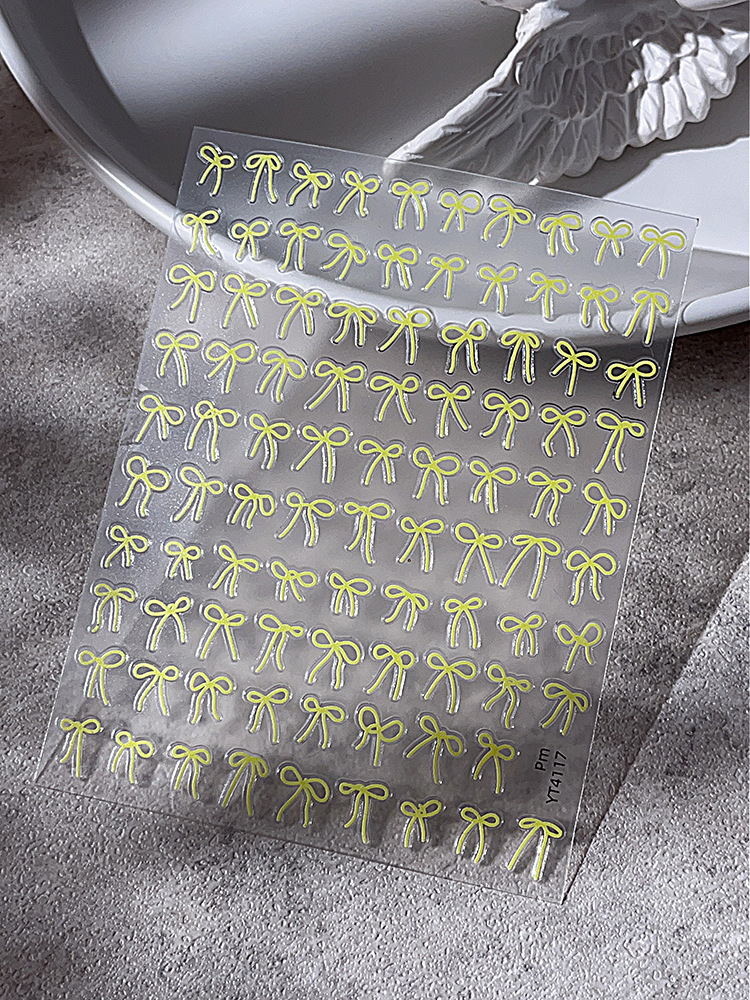 Pm
YT4117